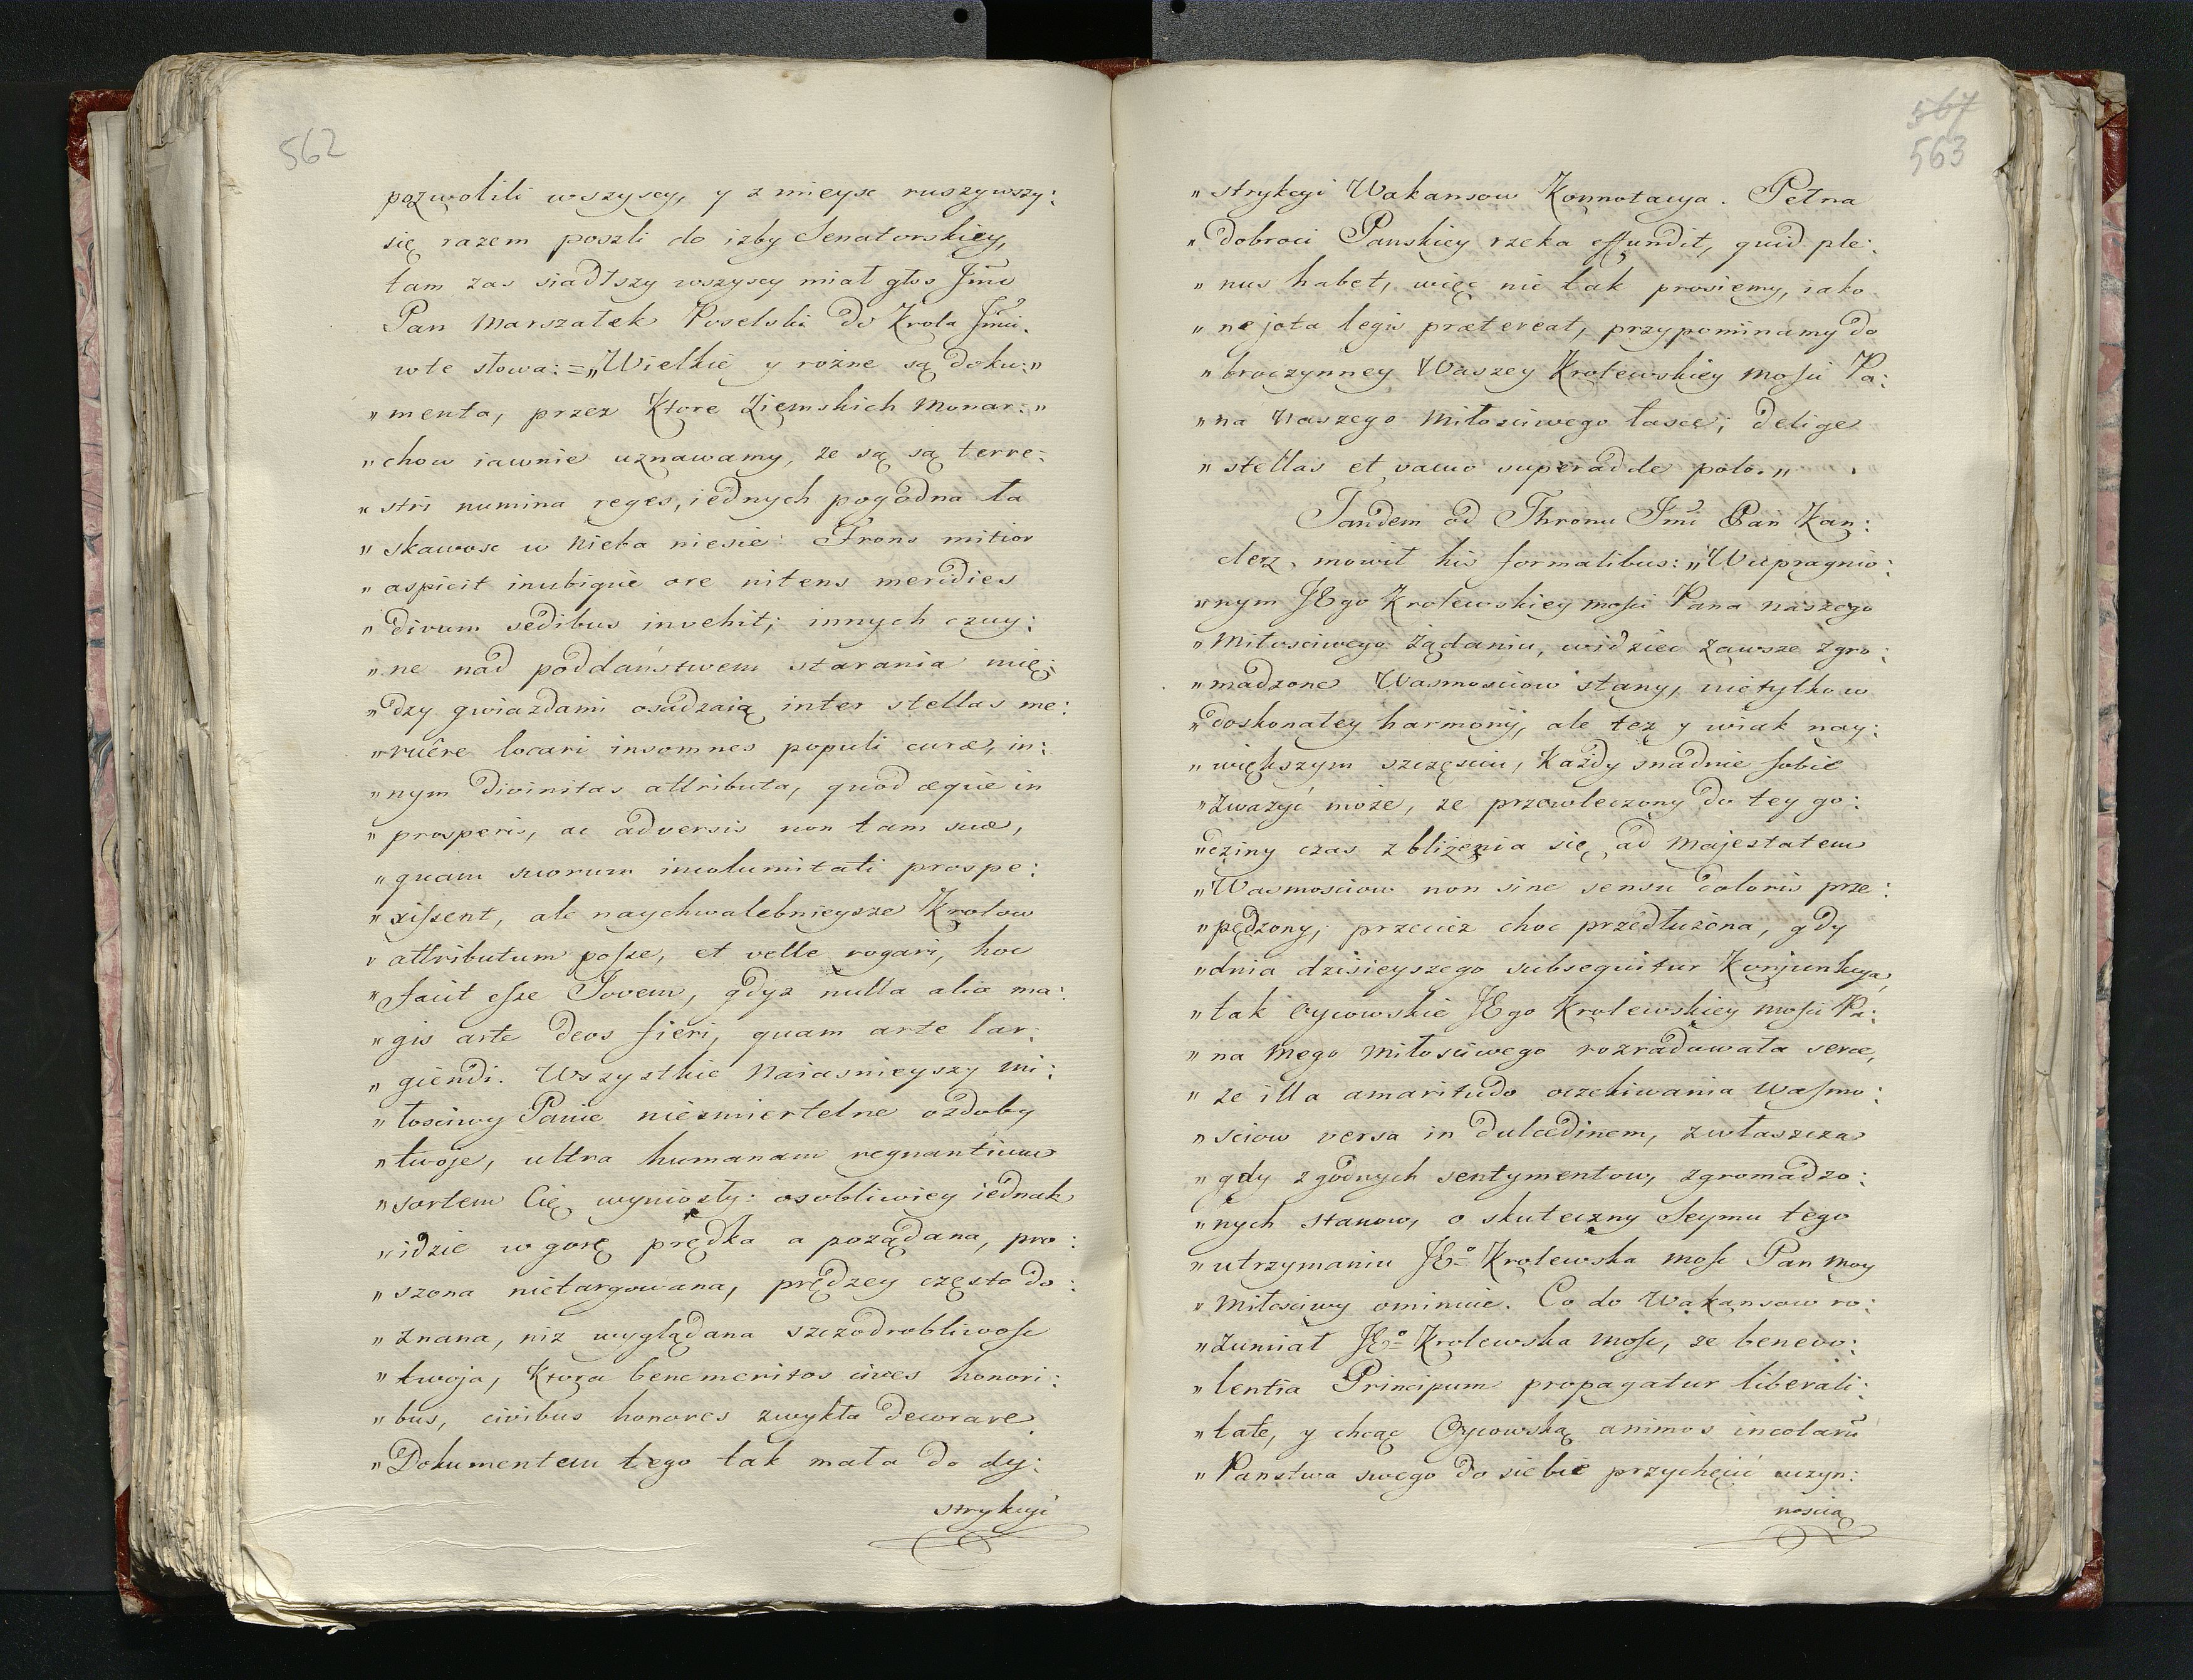 562
pozwolili wszyscy, y z mieysc ruszywszy:
się razem poszli do izby Senatorskiey,
tam zas siadłszy wszyscy miał głos Jmc
Pan Marszałek Poselski do Krola Jmci.
wte słowa: = „Wielkie y rożne są doku:„
„menta, przez Ktore Ziemskich Monar:„
„chow iawnie uznawamy, że są są terre:
„stri numina reges, iednych pogodna ła
„skawosc w Nieba niesie: Frons mitior
„aspicit inubique ore nitens meridies
„divum sedibus invehit; innych czuy:
„ne nad poddaństwem starania mię:
„dzy gwiazdami osadzaią inter stellas me:
„ruêre locari insomnes populi curæ, in:
„nym divinitas attributa, quod æque in
„prosperis, ac adversis non tam suæ,
„quam suorum incolumitati prospe:
„xissent, ale naychwalebnieysze Krolow
„attributum posse, et velle rogari, hoc
„facit esse Jovem, gdyż nulla alia ma:
„gis arte deos fieri, quam arte lar:
„giendi. Wszystkie Naiasnieyszy Mi:
„łosciwy Panie niesmiertelne ozdoby
„twoje, ultra humanam regnantium
„sortem Cię wyniosły: osobliwiey iednak
„idzie w gorę prędka a pożądana, pro:
„szona nietargowana, prędzey często do:
„znana, niz wyglądana szczodrobliwosc
„twoja, Ktora benemeritos cives honori:
„bus, civibus honores zwykła decorare
„Dokumentem tego tak mała do dy:
strykcyi
567
563
„strykcyi Wakansow Konnotacya. Pełna
„dobroci Panskiey rzeka effundit, quid ple:
„nus habet, więc nie tak prosiemy, iako
„ne jota legis prætereat, przypominamy do
„broczynney Waszey Krolewskiey Mosci Pa:
„na Naszego Miłosciwego łasce; delige
„stellas et vacuo superadde polo.„
Tandem od Thronu Jmć Pan Kan:
clerz, mowił his formalibus: „W upragnio:
„nym JEgo Krolewskiey Mosci Pana Naszego
„Miłosciwego żądaniu, widziec zawsze zgro:
„madzone Wasmosciow stany, nietylko w
„doskonałey harmonij, ale też y wiak nay:
„większym szczęsciu, Każdy snadnie sobie
„zważyć może, że przewleczony do tey go:
„dziny czas zbliżenia się ad Majestatem
„Wasmosciow non sine sensu doloris prze:
„pędzony, przeciez choc przedłużona, gdy
„dnia dzisieyszego subsequitur Konjunkcya,
„tak Oycowskie JEgo Krolewskiey Mosci Pa:
„na Mego Miłosciwego rozradowała serce,
„ze illa amaritudo oczekiwania Wasmo:
„sciow versa in dulcedinem, zwłaszcza
„gdy zgodnych sentymentow, zgromadzo:
„nych stanow, o skuteczny Seymu tego
„utrzymaniu JEº Krolewska Mosc Pan Moy
„Miłosciwy ominuie. Co do Wakansow ro:
„zumiał JEº Krolewska Mosc, ze benevo:
„lentia Principum propagatur liberali:
„tate, y chcąc Oycowską animos incolarū
„Panstwa swego do siebie przychęcić uczyn:
noscią